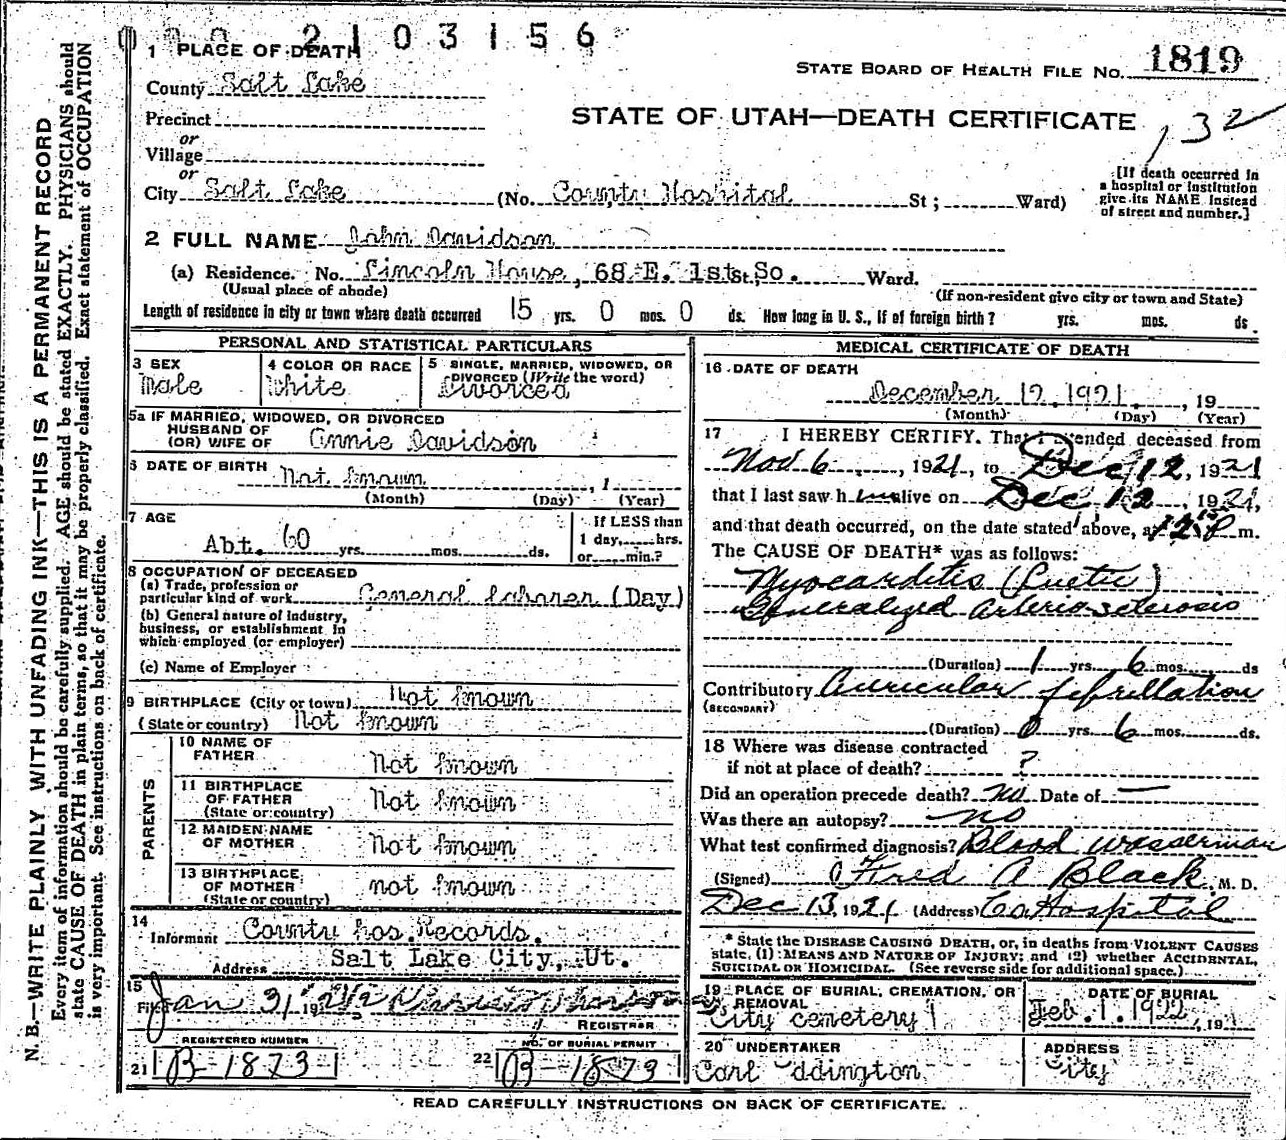 2103156
1 PLACE OF DEATH
STATE BOARD OF HEALTH FILE NO. 1819
County Salt Lake
STATE OF UTAH—DEATH CERTIFICATE
132
Precinct
or
Village
or
City Salt Lake (No. County Hospital St; Ward)
[If death occurred in
a hospital or institution
give its NAME instead
of street and number.]
2 FULL NAME John Davidson
(a) Residence. No. Lincoln House, 68 E. 1st St, So. Ward.
(Usual place of abode) (If non-resident give city or town and State)
Length of residence in city or town where death occurred 15 yrs. 0 mos. 0 ds. How long in U. S., if of foreign birth? yrs. mos. ds.
PERSONAL AND STATISTICAL PARTICULARS
3 SEX
Male
4 COLOR OR RACE
White
5 SINGLE, MARRIED, WIDOWED, OR
DIVORCED (Write the word)
Divorced
5a IF MARRIED, WIDOWED, OR DIVORCED
HUSBAND OF
(OR) WIFE OF Annie Davidson
6 DATE OF BIRTH Not known, 1
(Month) (Day) (Year)
7 AGE
Abt. 60 yrs. mos. ds.
If LESS than
1 day, hrs.
or min.?
8 OCCUPATION OF DECEASED
(a) Trade, profession or
particular kind of work General Laborer (Day)
(b) General nature of industry,
business, or establishment in
which employed (or employer)
(c) Name of Employer
9 BIRTHPLACE (City or town) Not known
(State or country) Not known
PARENTS
10 NAME OF
FATHER Not known
11 BIRTHPLACE
OF FATHER Not known
(State or country)
12 MAIDEN NAME
OF MOTHER Not known
13 BIRTHPLACE
OF MOTHER not known
(State or country)
14
Informant County hos. Records.
Address Salt Lake City, Ut.
15
Filed Jan 31, 1922
REGISTRAR
REGISTERED NUMBER
21 B-1873
NO. OF BURIAL PERMIT
22 B-1873
MEDICAL CERTIFICATE OF DEATH
16 DATE OF DEATH
December 12. 1921. , 19
(Month) (Day) (Year)
17 I HEREBY CERTIFY. That I attended deceased from
Nov 6, 1921, to Dec 12, 1921
that I last saw him alive on Dec 12, 1921,
and that death occurred, on the date stated above, at m.
The CAUSE OF DEATH* was as follows:
Myocarditis (Luetic)
Generalized arterio sclerosis
(Duration) 1 yrs. 6 mos. ds
Contributory Auricular fifrillation
(SECONDARY)
(Duration) 0 yrs. 6 mos. ds.
18 Where was disease contracted
if not at place of death? ?
Did an operation precede death? no Date of —
Was there an autopsy? no
What test confirmed diagnosis? Blood wasserman
(Signed) Fred A Black, M. D.
Dec 13, 1921 (Address) Co Hospital
* State the DISEASE CAUSING DEATH, or, in deaths from VIOLENT CAUSES
state, (1) MEANS AND NATURE OF INJURY; and (2) whether ACCIDENTAL,
SUICIDAL OR HOMICIDAL. (See reverse side for additional space.)
19 PLACE OF BURIAL, CREMATION, OR
REMOVAL
City cemetery
DATE OF BURIAL
Feb. 1. 1922, 191
20 UNDERTAKER
Carl ddington
ADDRESS
City
READ CAREFULLY INSTRUCTIONS ON BACK OF CERTIFICATE.
N. B.—WRITE PLAINLY WITH UNFADING INK—THIS IS A PERMANENT RECORD
Every item of information should be carefully supplied. AGE should be stated EXACTLY. PHYSICIANS should
state CAUSE OF DEATH in plain terms, so that it may be properly classified. Exact statement of OCCUPATION
is very important. See instructions on back of certificate.